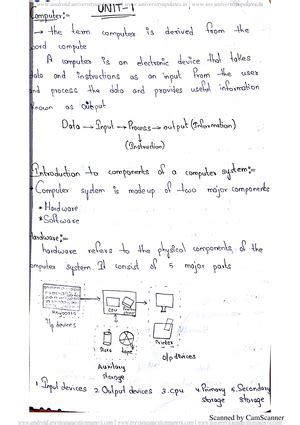 UNIT-1
Computer:-
→ the term computer is derived from the
word compute
A computer is an electronic device that takes
data and instructions as an input from the user
and process the data and provides useful information
known as output
Data → Input → Process → output (Information)
↓
(Instruction)
Introduction to components of a computer system:-
* Computer system is made up of two major components
* Hardware
* Software
Hardware:-
hardware refers to the physical components of the
computer system. It consist of 5 major parts
Keyboard
CPU
I/p devices
Printer
Tape
O/p devices
Auxiliary
storage
1. Input devices 2. Output devices 3. CPU 4. Primary 5. Secondary
storage storage
Scanned by CamScanner